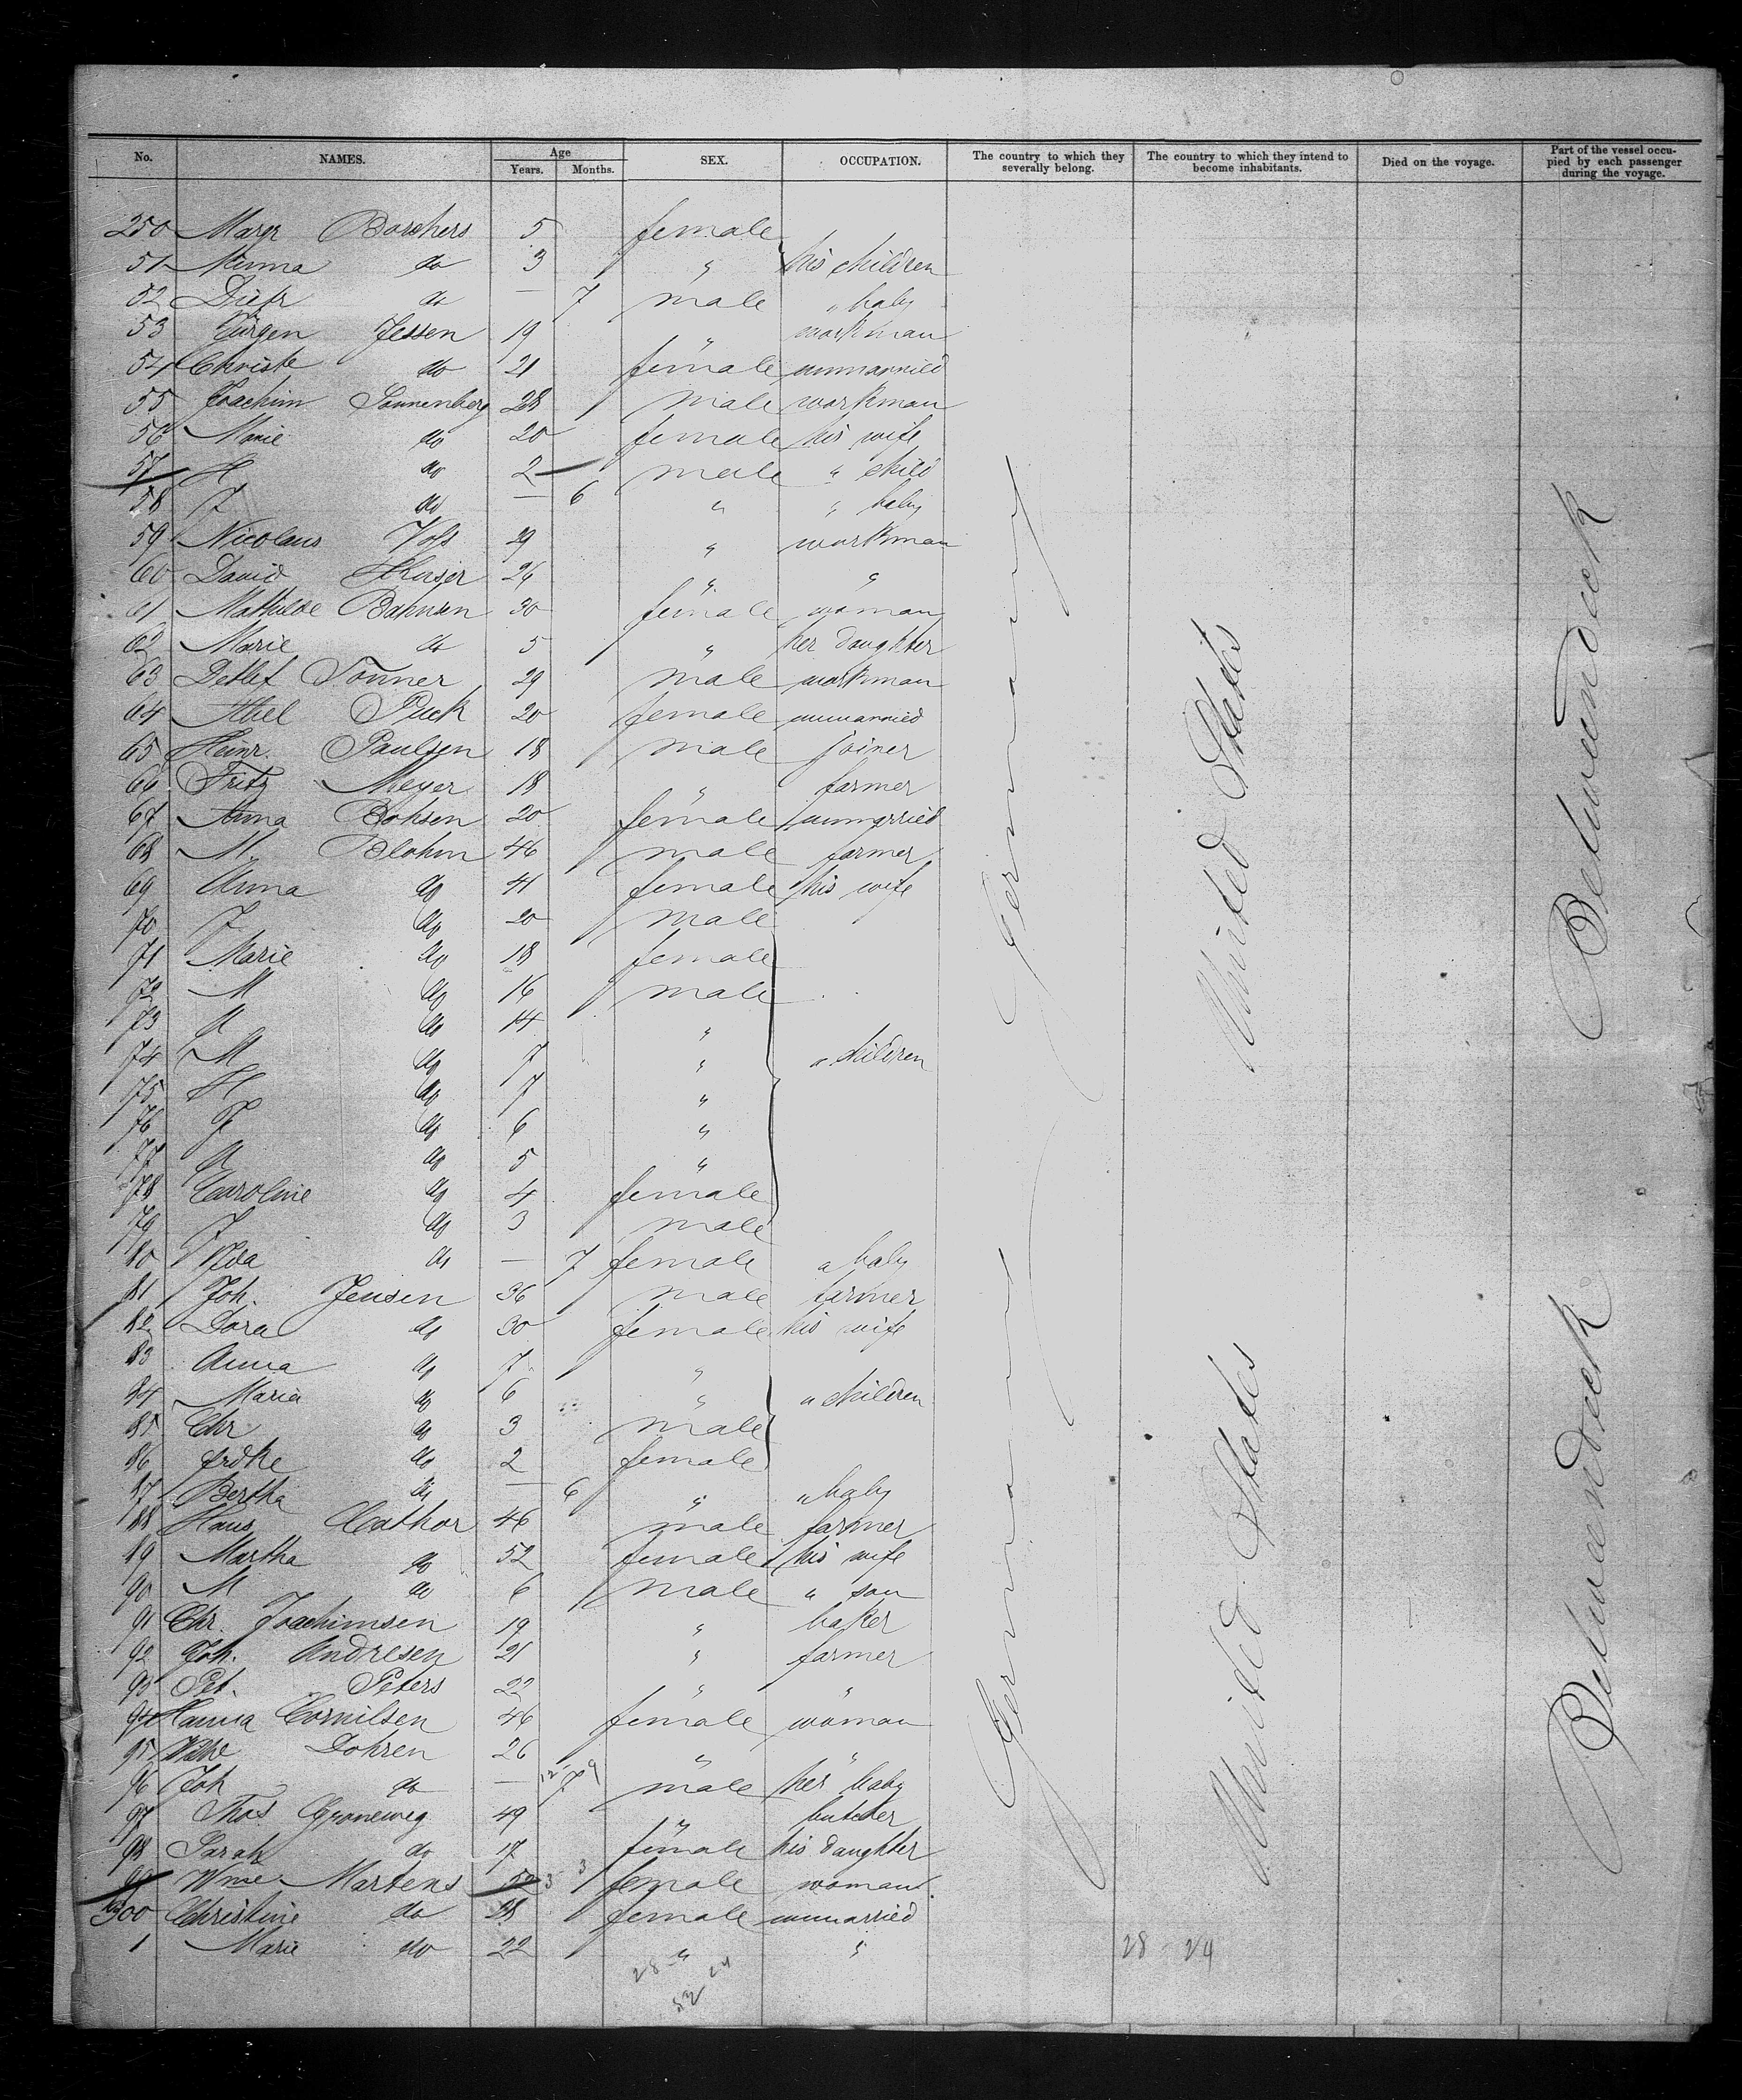 No. NAMES. Age Years. Months. SEX. OCCUPATION. The country to which they severally belong. The country to which they intend to become inhabitants. Died on the voyage. Part of the vessel occupied by each passenger during the voyage.
250 Margr Borchers 5 female
51 Minna do 3 " his children
52 Dietr do — 7 male " baby
53 Jürgen Jessen 19 " workman
54 Christe do 21 female unmarried
55 Joachim Sonnenberg 28 male workman
56 Marie do 20 female his wife
57 H do 2 male " child
58 J do — 6 " " baby
59 Nicolaus Voss 29 " workman
60 David 26 " "
61 Mathilde Bahnsen 30 female woman
62 Marie do 5 " her daughter
63 Detlef Tonner 29 male workman
64 Abel Puck 20 female unmarried
65 Heinr. Paulsen 18 male joiner
66 Fritz Meyer 18 " farmer
67 Anna Bohsen 20 female unmarried
68 M. Blohm 46 male farmer
69 Anna do 41 female his wife
70 J do 20 male
71 Marie do 18 female
72 M do 16 male
73 A do 14 "
74 M do 7 " " children
75 H do 7 "
76 F do 6 "
77 A do 5 "
78 Caroline do 4 female
79 J do 3 male
80 Ida do — 7 female " baby
81 Joh. Jensen 36 male farmer
82 Dora do 30 female his wife
83 Anna do 7 "
84 Maria do 6 " " children
85 Chr do 3 male
86 do 2 female
87 Bertha do — 6 " " baby
88 Hans Cathor 46 male farmer
89 Martha do 52 female his wife
90 M do 6 male " son
91 Chr. Joachimsen 19 " baker
92 Joh. Andresen 21 " farmer
93 Pet. Peters 22 " "
94 Hanna Cornilsen 46 female woman
95 Wbe Dohren 26 " "
96 Joh do — 7 male her baby
97 Thos. Groneweg 49 " butcher
98 Sarah do 17 female his daughter
99 Wme Martens 52 female woman
300 Christine do 28 female unmarried
1 Marie do 22 " "
Germany
United States
Between deck
Germany
United States
Between deck
28 24
52
28 - 24